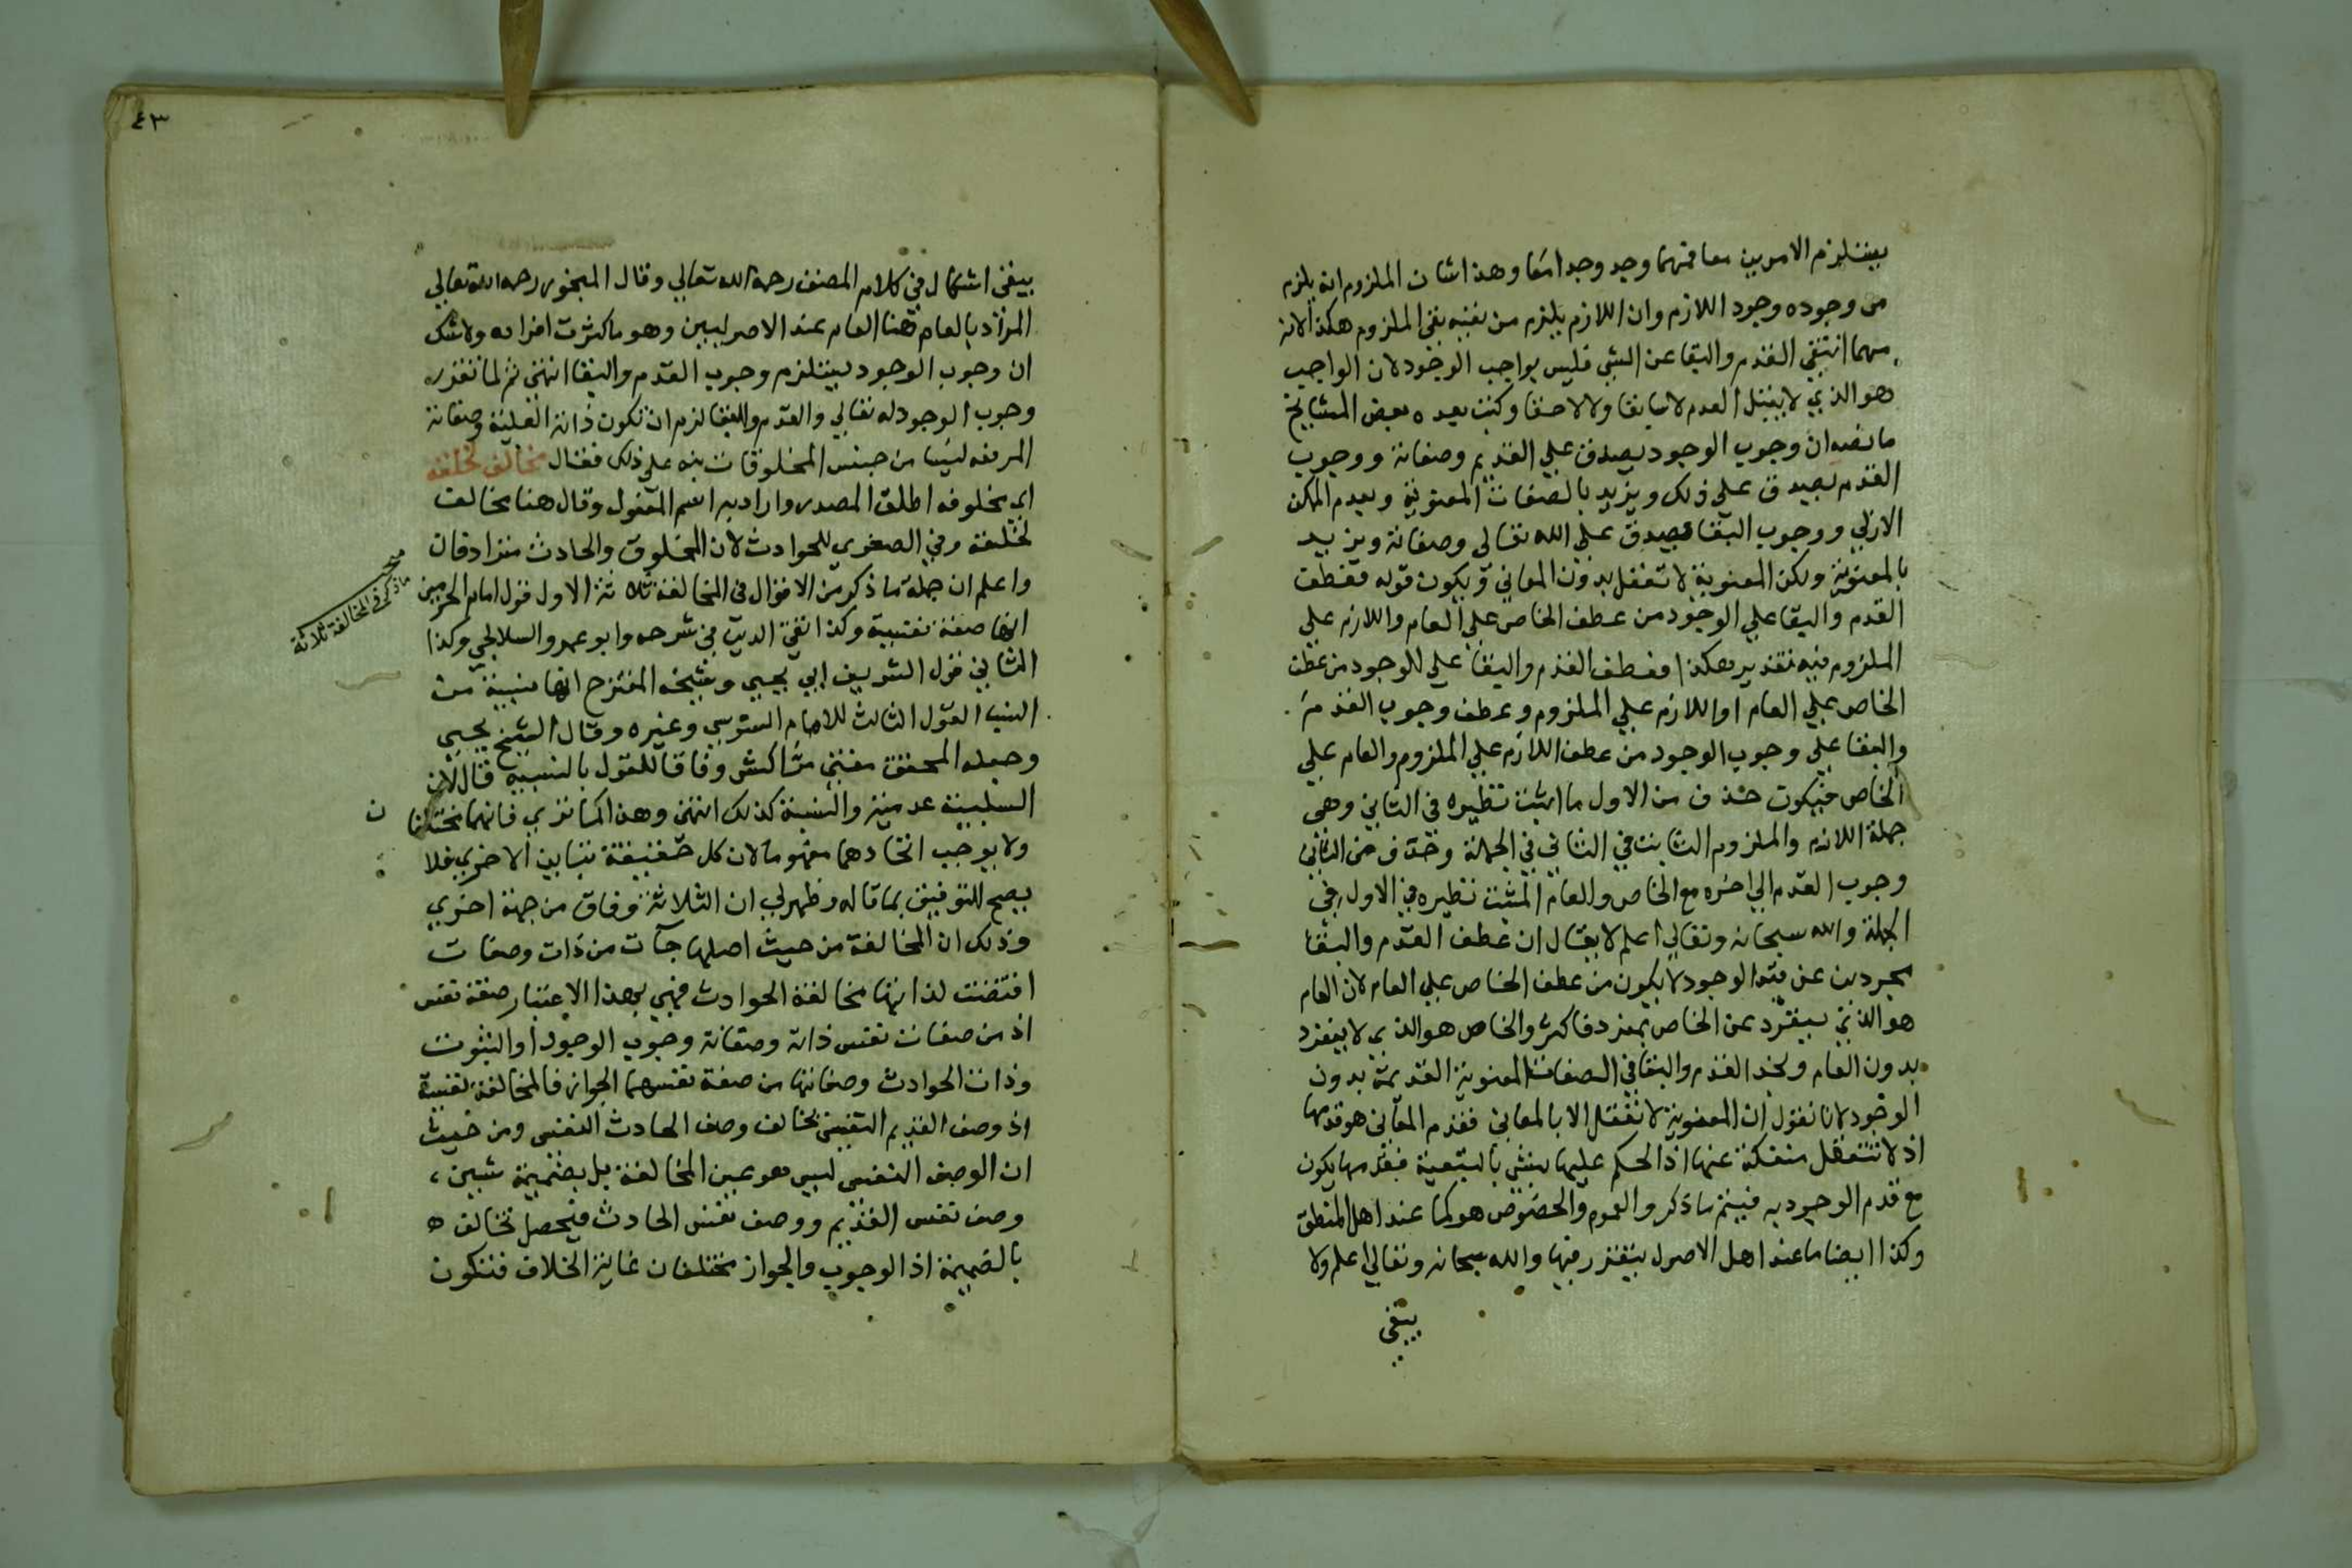 يستلزم الامرين معا فمتهما وجد وجدا معا وهذا شان الملزوم انه يلزم
من وجوده وجود اللازم وان اللازم يلزم من نفيه نفي الملزوم هكذا لانه
مهما انتفي القدم والبقا عن الشي فليس بواجب الوجود لان الواجب
هو الذي لا يقبل العدم لا سابقا ولا لاحقا وكتب بعده بعض المشايخ
ما نصه ان وجوب الوجود يصدق علي القديم وصفاته ووجوب
القدم يصدق علي ذلك ويزيد بالصفات المعنوية وبعدم الممكن
الازلي ووجوب البقا فيصدق علي الله تعالي وصفاته ويزيد
بالمعنوية ولكن المعنوية لا تعقل بدون المعاني ويكون قوله فعطف
القدم والبقا علي الوجود من عطف الخاص علي العام واللازم علي
الملزوم فيه تقدير هكذا فعطف القدم والبقا علي الوجود من عطف
الخاص علي العام او اللازم علي الملزوم وعطف وجوب القدم
والبقا علي وجوب الوجود من عطف اللازم علي الملزوم والعام علي
الخاص فيكون حذف من الاول ما اثبت نظيره في الثاني وهي
جملة اللازم والملزوم الثابت في الثاني في الجملة وحذف من الثاني
وجوب القدم الي اخره مع الخاص والعام المثبت نظيره في الاول في
الجملة والله سبحانه وتعالي اعلم لا يقال ان عطف القدم والبقا
مجردين عن قيد الوجود لا يكون من عطف الخاص علي العام لان العام
هو الذي ينفرد عن الخاص بمفرد فاكثر والخاص هو الذي لا ينفرد
بدون العام ونجد القدم والبقا في الصفات المعنوية القديمة بدون
الوجود لانا نقول ان المعنوية لا تعقل الا بالمعاني فقدم المعاني هو قدمها
اذ لا تتعقل منفكة عنها اذ الحكم عليها بشي بالتبعية فقدمها يكون
مع قدم الوجود به فيتم ما ذكر والعموم والخصوص هو كما عند اهل المنطق
وكذا ايضا ما عند اهل الاصول يتقرر فيها والله سبحانه وتعالي اعلم ولا
يبقي
٤٣
يبقي اشكال في كلام المصنف رحمه الله تعالي وقال المنجور رحمه الله تعالي
المراد بالعام هنا العام عند الاصوليين وهو ما كثرت افراده ولا شك
ان وجوب الوجود يستلزم وجوب القدم والبقا انتهي ثم لما تقرر
وجوب الوجود له تعالي والقدم والبقا لزم ان تكون ذاته العلية وصفاته
المرفعه ليسا من جنس المخلوقات نبه علي ذلك فقال مخالف لخلقه
اي مخلوقه اطلق المصدر واراد به اسم المفعول وقال هنا مخالف
لخلقه وفي الصغري للحوادث لان المخلوق والحادث مترادفان
واعلم ان جملة ما ذكر من الاقوال في المخالفة ثلاثة الاول قول امام الحرمين
انها صفة نفسية وكذا تقي الدين في شرحه وابو عمرو السلالجي وكذا
الثاني قول الشريف ابي يحيي وشيخه المقترح انها نسبية من
النسب القول الثالث للامام السنوسي وغيره وقال الشيخ يحيي
وجعله المحقق مفتي مراكش وفاقا للقول بالنسبية قال لان
السلبية عدمية والنسبة كذلك انتهي وهذا كما تري فانهما مختلفان
ولا يوجب اتحادهما مفهوما لان كل حقيقة تباين الاخري فلا
يصح التوفيق بما قاله وظهر لي ان الثلاثة وفاق من جهة اخري
وذلك ان المخالفة من حيث اصلها جآت من ذات وصفات
اقتضت لذاتها مخالفة الحوادث فهي بهذا الاعتبار صفة نفس
اذ من صفات نفس ذاته وصفاته وجوب الوجود او الثبوت
وذات الحوادث وصفاتها من صفة نفسهما الجواز فالمخالفة نفسية
اذ وصف القديم النفسي يخالف وصف الحادث النفسي ومن حيث
ان الوصف النفسي ليس هو عين المخالفة بل بضميمة شيين
وصف نفس القديم ووصف نفس الحادث فيحصل تخالف
بالضميمة اذ الوجوب والجواز مختلفان غاية الخلاف فتكون
ما ذكر في المخالفة ثلاثة